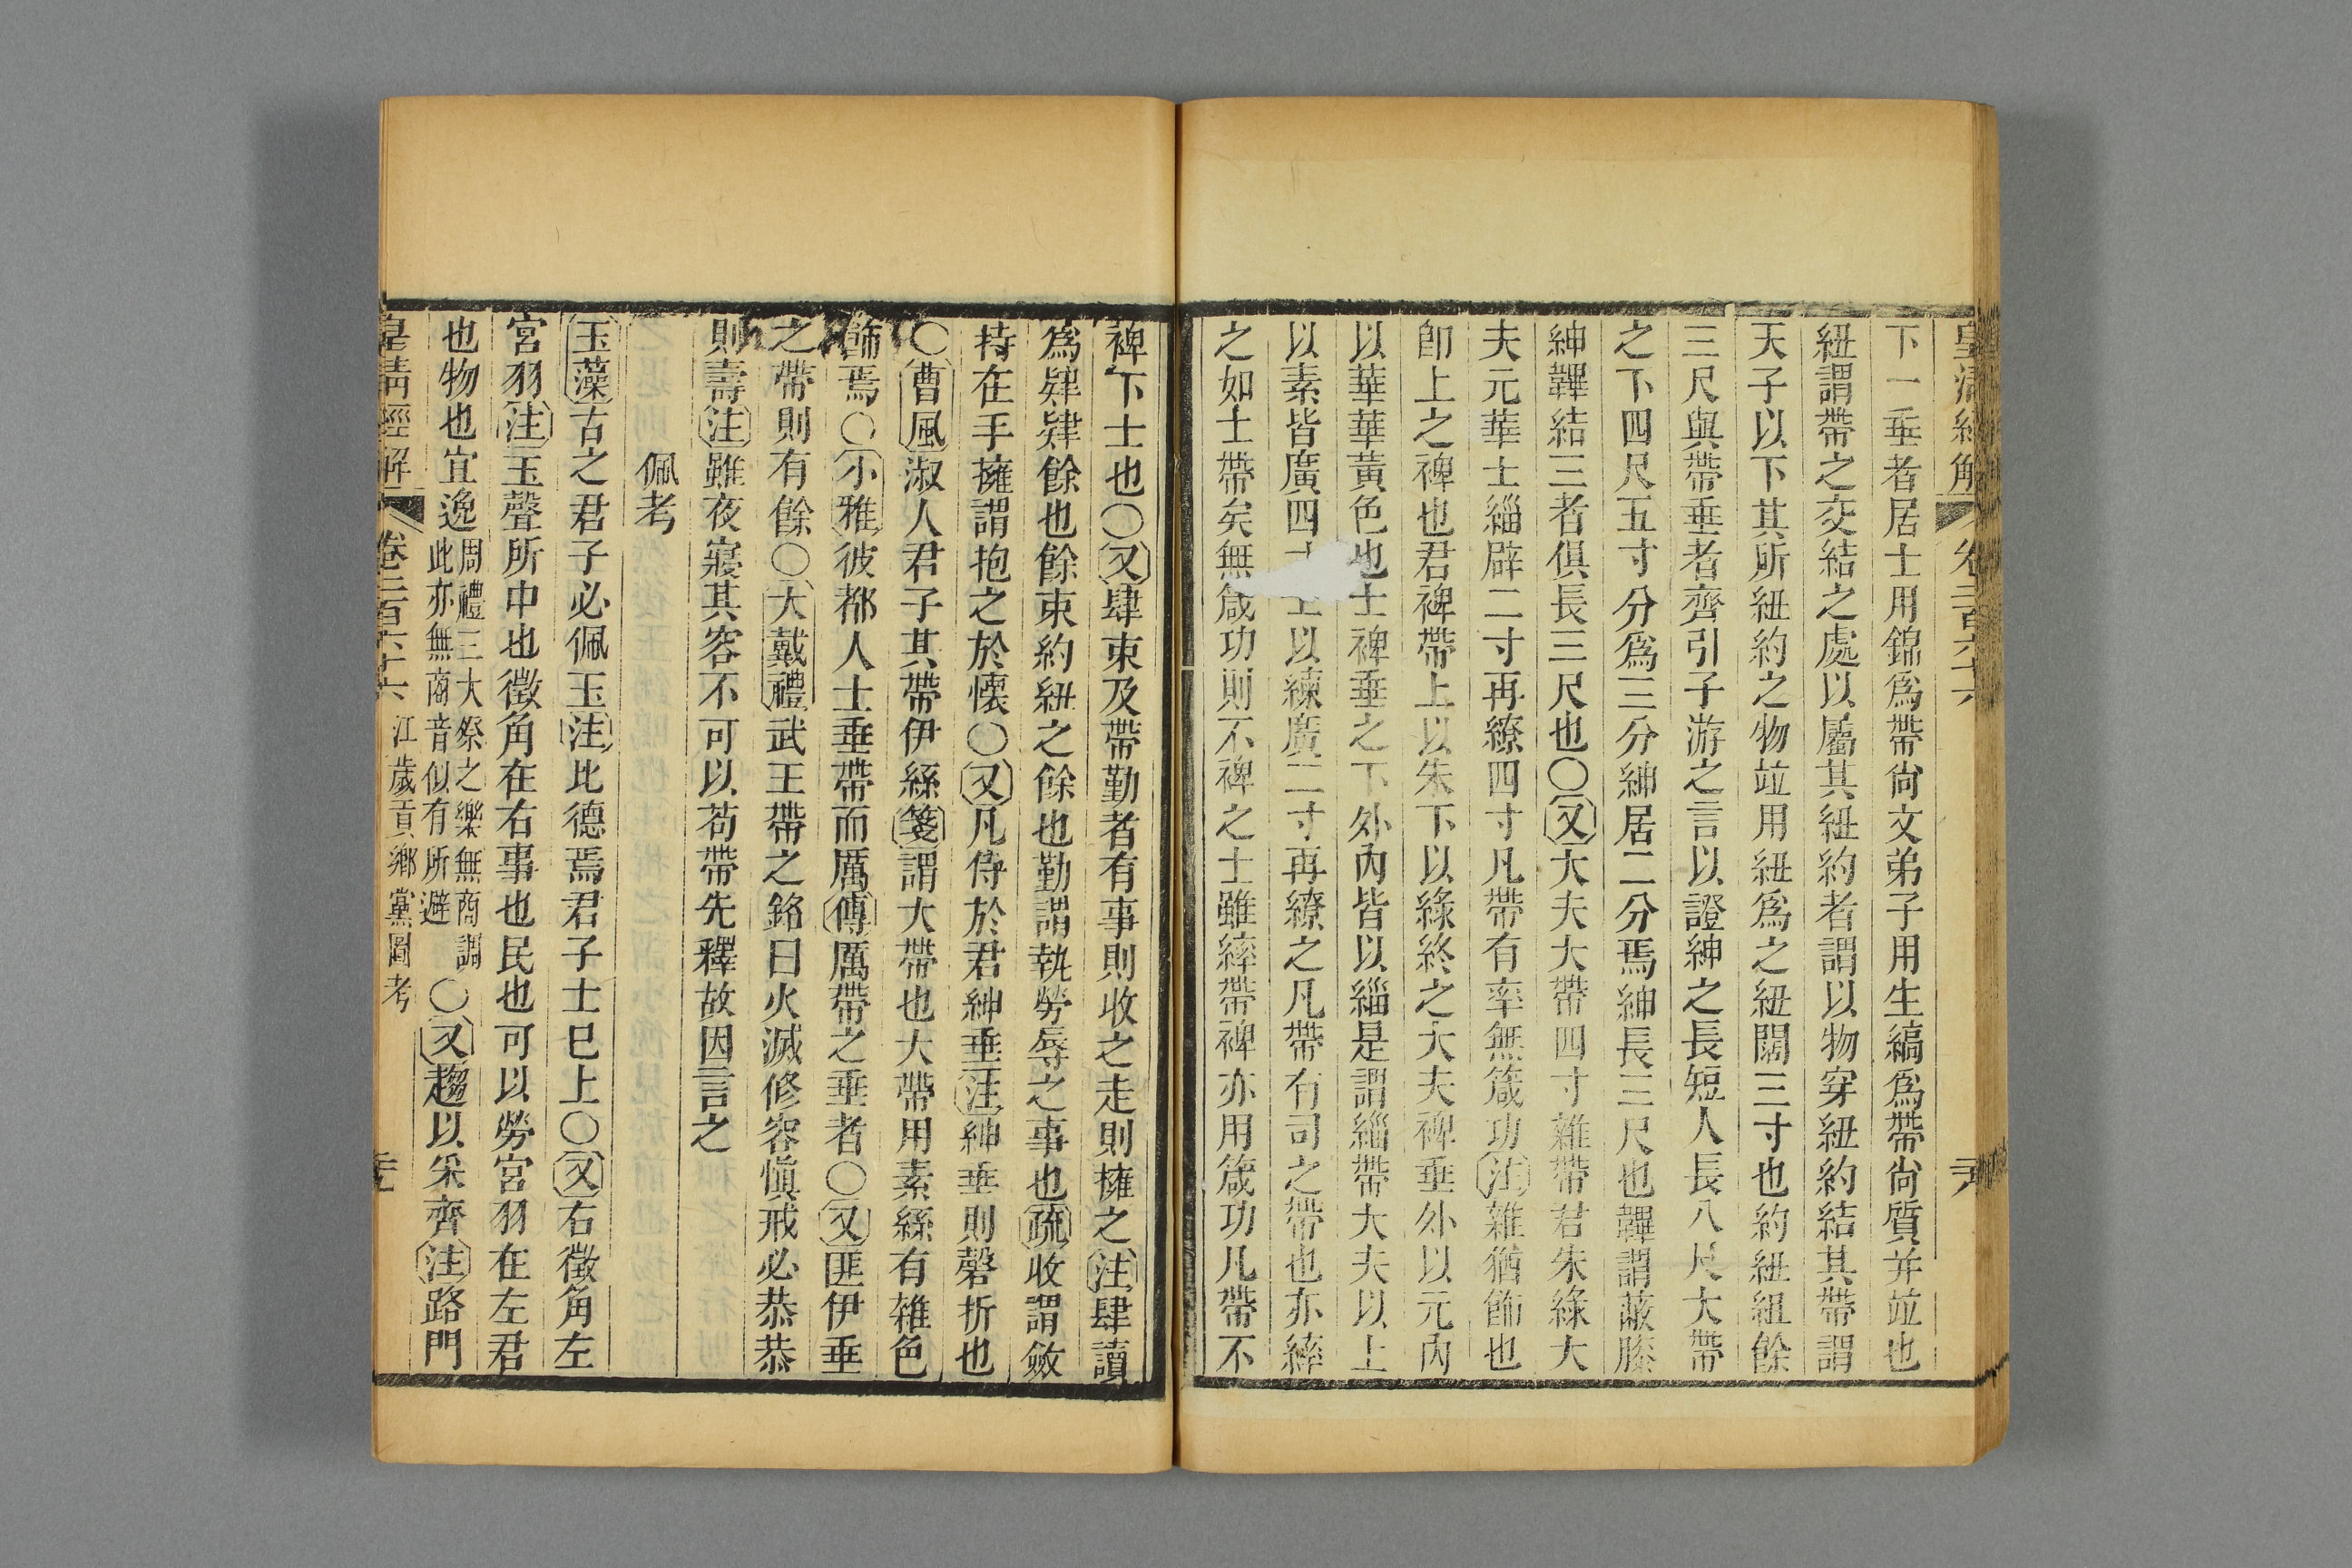 皇清經解 卷二百六十六
下一垂者居士用錦爲帶尙文弟子用生縞爲帶尙質幷竝也
紐謂帶之交結之處以屬其紐約者謂以物穿紐約結其帶謂
天子以下其所紐約之物竝用紐爲之紐闊三寸也約紐組餘
三尺與帶垂者齊引子游之言以證紳之長短人長八尺大帶
之下四尺五寸分爲三分紳居二分焉紳長三尺也韠謂蔽膝
紳韠結三者俱長三尺也〇又大夫大帶四寸雜帶君朱綠大
夫元華士緇辟二寸再繚四寸凡帶有率無箴功注雜猶飾也
卽上之裨也君裨帶上以朱下以綠終之大夫裨垂外以元內
以華華黃色也士裨垂之下外內皆以緇是謂緇帶大夫以上
以素皆廣四寸士以練廣二寸再繚之凡帶有司之帶也亦繂
之如士帶矣無箴功則不裨之士雖繂帶裨亦用箴功凡帶不
裨下士也〇又肆束及帶勤者有事則收之走則擁之注肆讀
爲肄肄餘也餘束約紐之餘也勤謂執勞辱之事也疏收謂斂
持在手擁謂抱之於懷〇又凡侍於君紳垂注紳垂則磬折也
〇曹風淑人君子其帶伊絲箋謂大帶也大帶用素絲有雜色
飾焉〇小雅彼都人士垂帶而厲傳厲帶之垂者〇又匪伊垂
之帶則有餘〇大戴禮武王帶之銘曰火滅修容愼戒必恭恭
則壽注雖夜寢其容不可以苟帶先釋故因言之
佩考
玉藻古之君子必佩玉注比德焉君子士已上〇又右徵角左
宮羽注玉聲所中也徵角在右事也民也可以勞宮羽在左君
也物也宜逸周禮三大祭之樂無商調此亦無商音似有所避〇又趨以采齊注路門
皇清經解 卷二百六十六 江歲貢鄉黨圖考